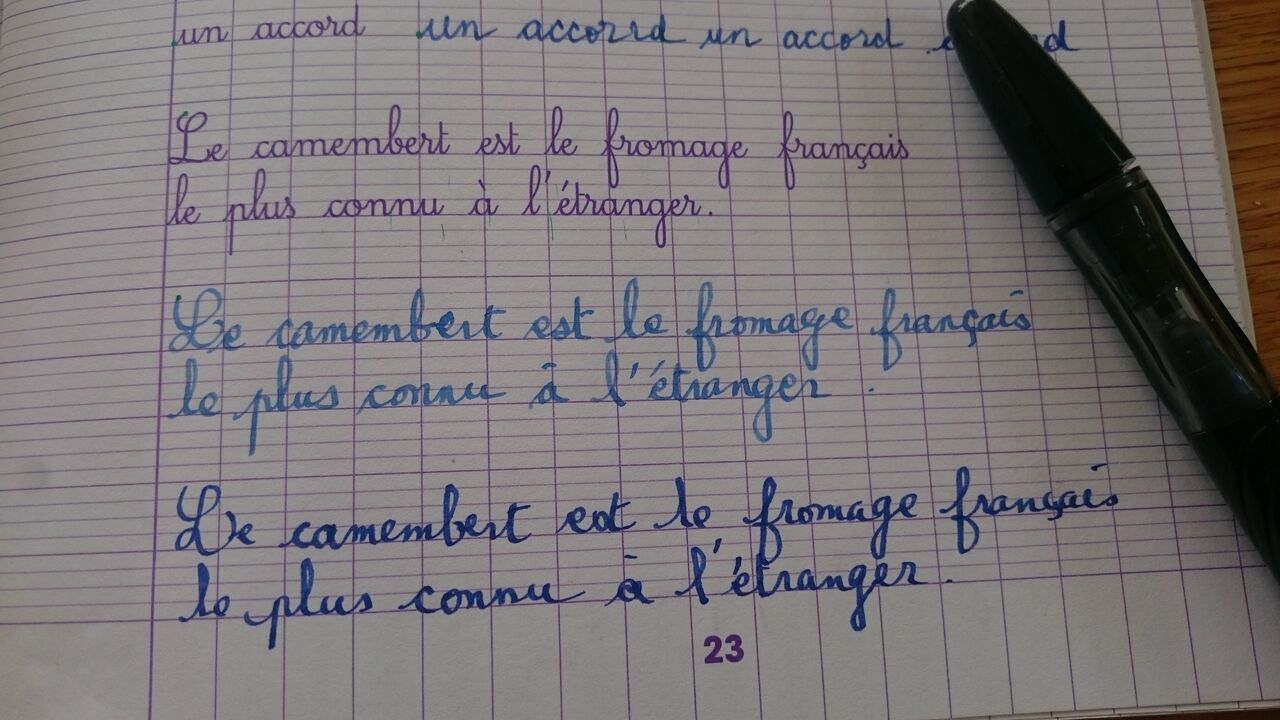 un accord un accord un accord
Le camembert est le fromage français
le plus connu à l'étranger.
Le camembert est le fromage français
le plus connu à l'étranger.
Le camembert est le fromage français
le plus connu à l'étranger.
23